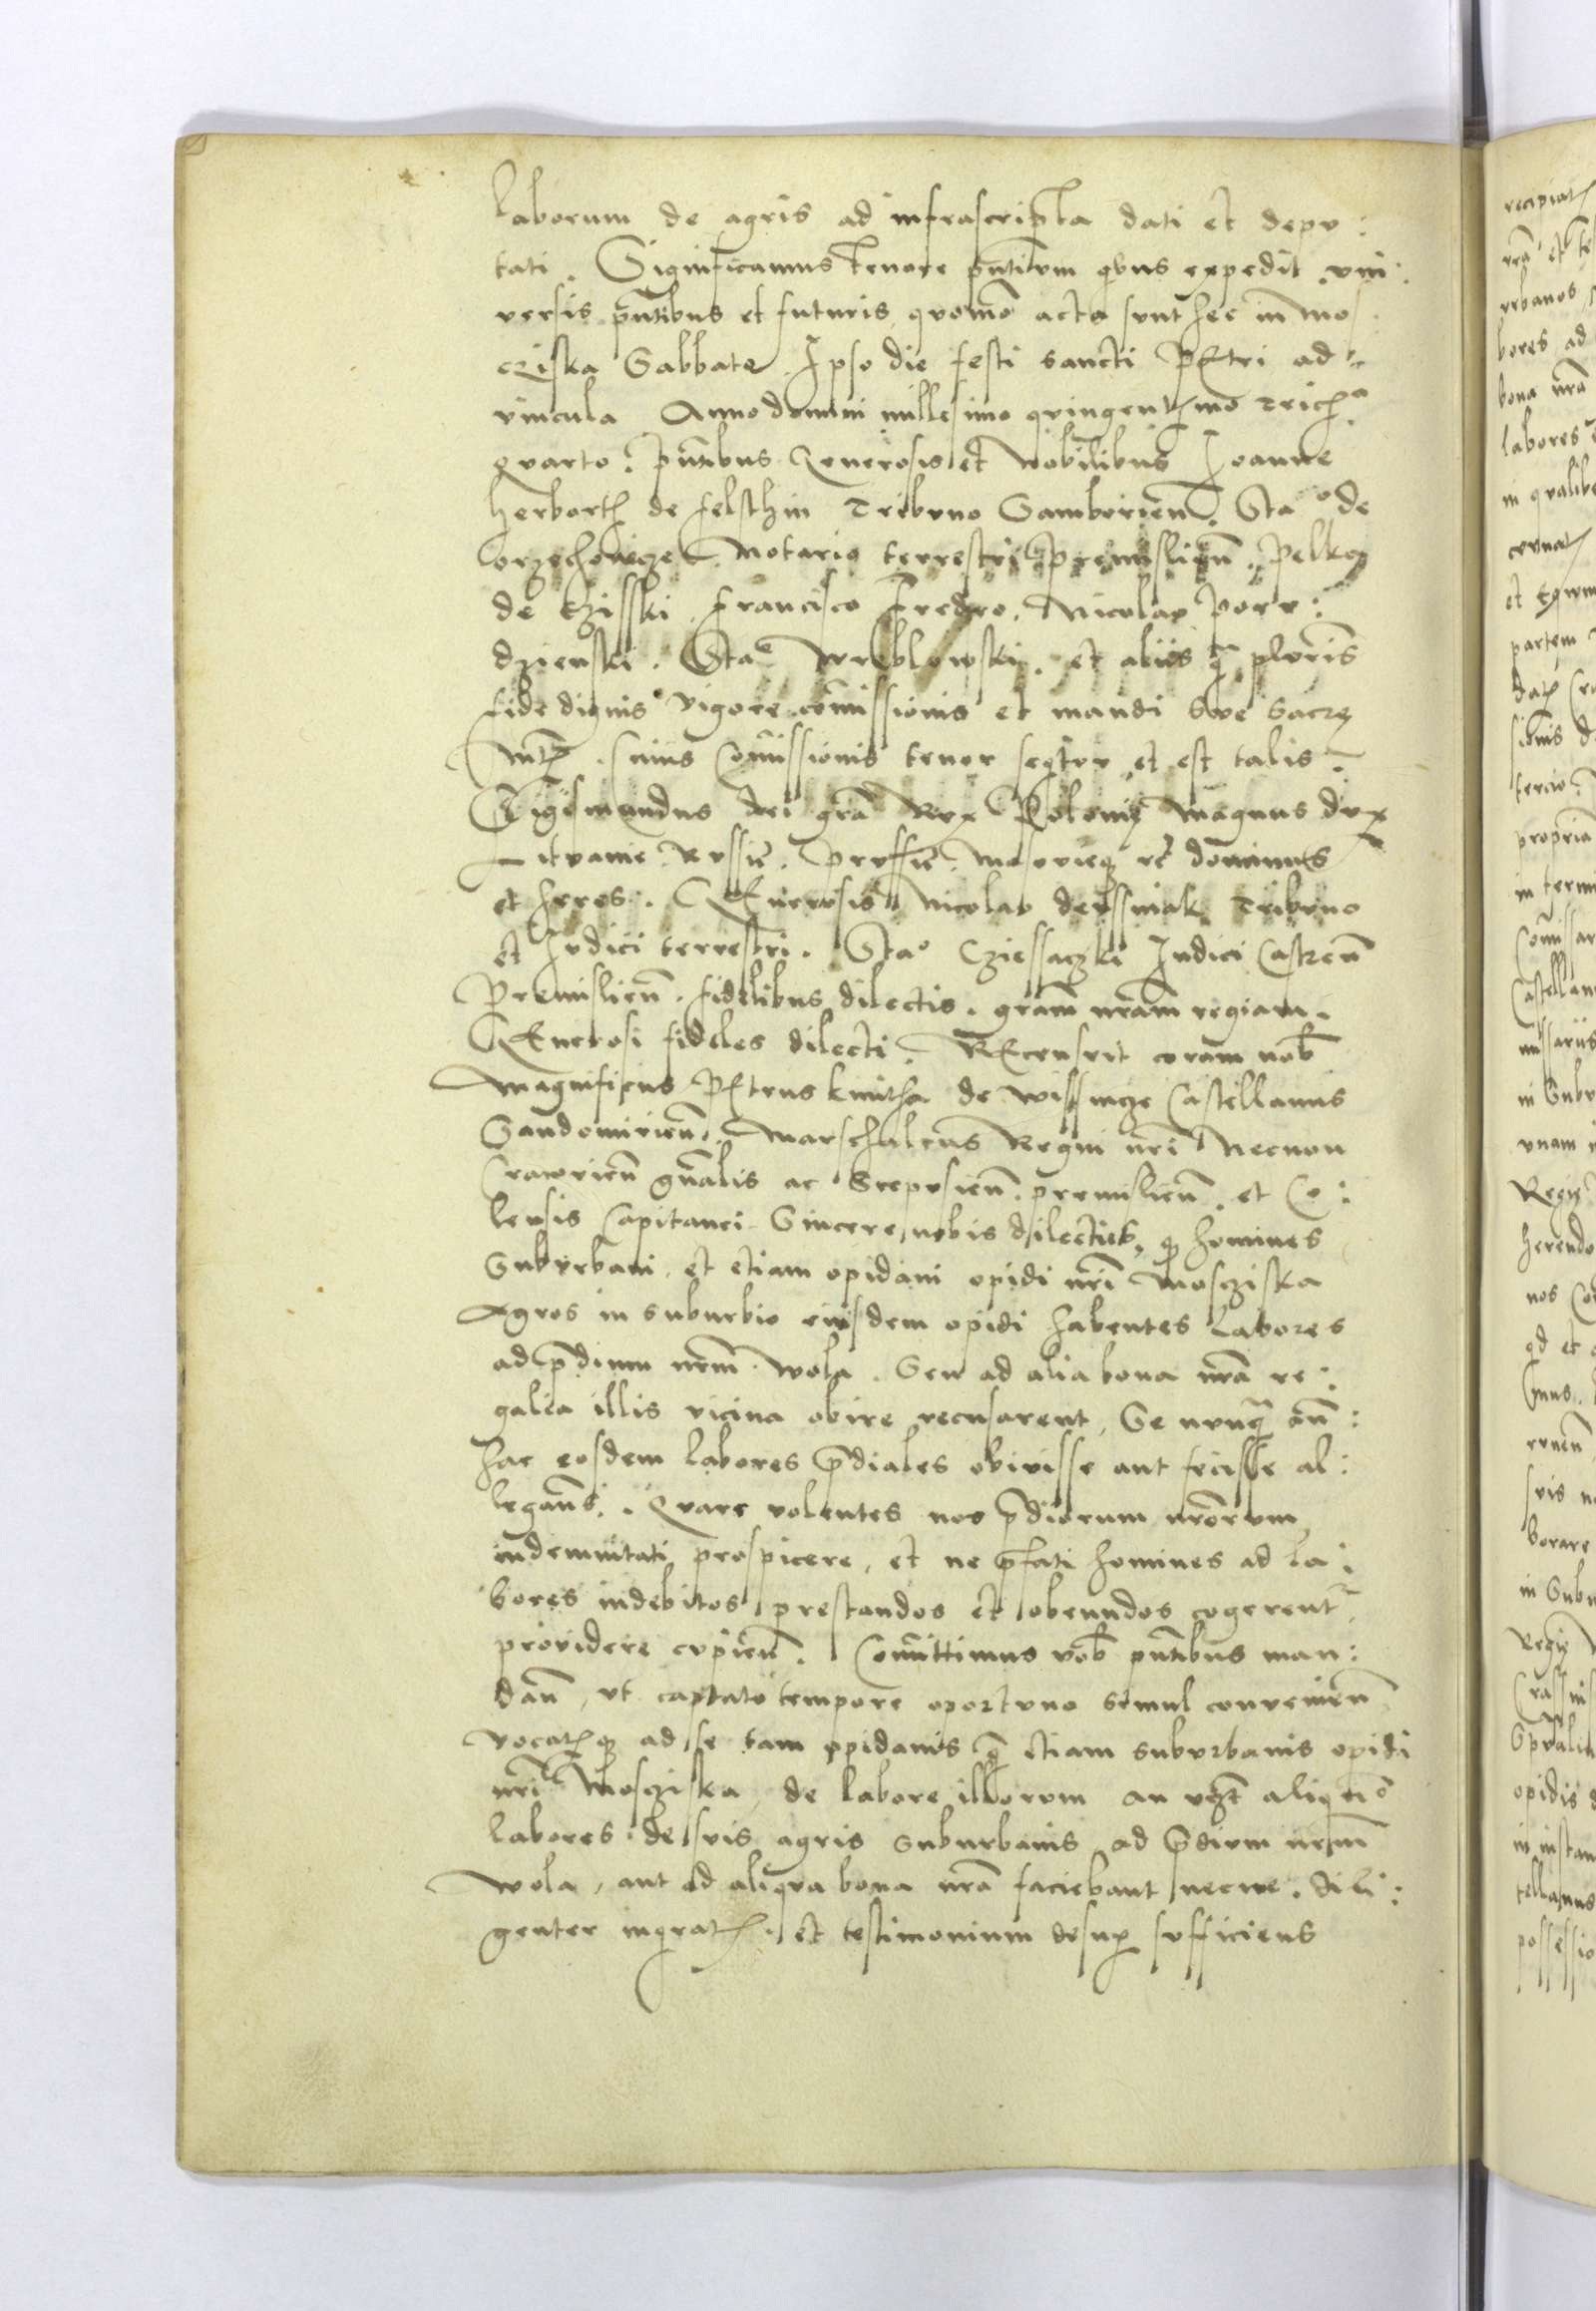 laborum de agris ad infrascripta dati et depu:
tati. Significamus tenore pn̄tium qbus expedit. uni:
versis pn̄tibus et futuris quom̄o acta sunt hec in Mos
cziska Sabbato Ipso die festi sancti Petri ad
vincula Anno domini millesimo quingentesimo
quarto. pn̄tibus Generosis et Nobilibus Joanne
herborth de felsthin Tribuno Samborien̄. Sta° de
orzechowcze Notario terrestri premislien̄. Pelka
de Francisco Fredro. Nicolao
dzienski. Stae Wreblowski. et aliis qȝ pluris
fide dignis vigore com̄issionis et mandi sue Sacre
Mtis. cuius Com̄issionis tenor seqtur et est talis.
Sigismundus dei gr̄a Rex Polonie Magnus dux
Lituanie. Russie. Prussie. Masovieqȝ etc dominus
et heres. Generosis Nicolao derssniak Tribuno
et Judici terrestri. Sta° Cziessaczki Judici Castren̄
Premislien̄. fidelibus dilectis. gr̄am nr̄am regiam.
Generosi fideles dilecti. Recensuit coram nob
Magnificus Petrus kmitha de Wissnicze Castellanus
Sandomirien̄. Marschalcus Regni nr̄i Necnon
Cracovien̄ gn̄alis ac Scepusien̄. premislien̄. et Co:
lensis Capitanei Sincere nobis dilectus, qȝ homines
Suburbani. et etiam opidani opidi nr̄i Mosziska
Agros in suburbio eiusdem opidi habentes labores
ad p̄dium nr̄m Wola. Seu ad alia bona nr̄a re:
galia illis vicina obire recusarent, Se nunqȝ an̄:
hac eosdem labores p̄diales obivisse aut fecisse al:
legan̄s. Quare volentes nos p̄diorum nr̄orum
indemnitati prospicere, et ne p̄fati homines ad la:
bores indebitos prestandos et obeundos cogerent̄
providere cupien̄. Com̄ittimus vob pn̄tibus man:
dan̄, ut captato tempore oportuno simul convenien̄
vocatisqȝ ad se tam opidanis qȝ etiam suburbanis opidi
nr̄i Mosziska, de labore illorum an
labores de suis agris suburbanis ad p̄dium nr̄m
Wola, aut ad aliqua bona nr̄a faciebant necne. dili:
genter inqratis. et testimonium desup sufficiens